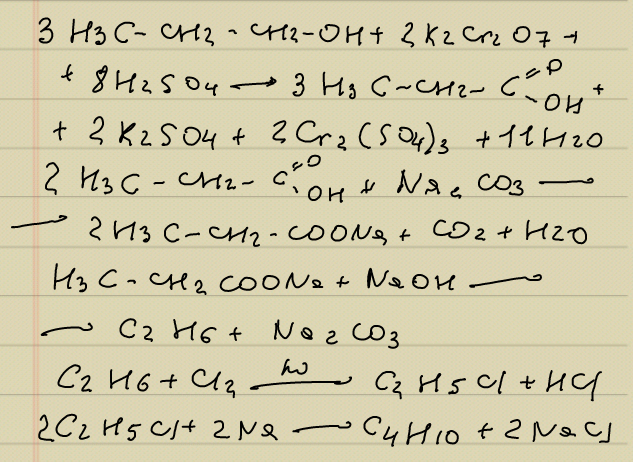 3 H3C- CH2 - CH2-OH + 2K2Cr2O7 +
+ 8H2SO4 → 3 H3C-CH2-C(=O)(-OH) +
+ 2K2SO4 + 2Cr2(SO4)3 + 11H2O
2 H3C - CH2- C(=O)(-OH) + Na2CO3 —
→ 2H3C-CH2-COONa + CO2 + H2O
H3C-CH2COONa + NaOH —
— C2H6 + Na2CO3
C2H6 + Cl2 —hν→ C2H5Cl + HCl
2C2H5Cl + 2Na → C4H10 + 2NaCl